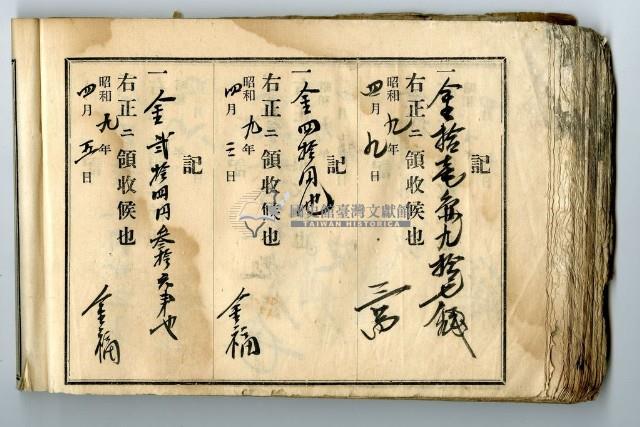 記
一金拾壱円九拾七銭
右正ニ領收候也
昭和九年
四月九日
三
記
一金四拾円也
右正ニ領收候也
昭和九年
四月三日
金福
記
一金弐拾四円叁拾六也
右正ニ領收候也
昭和九年
四月五日
金福
國史館臺灣文獻館
TAIWAN HISTORICA